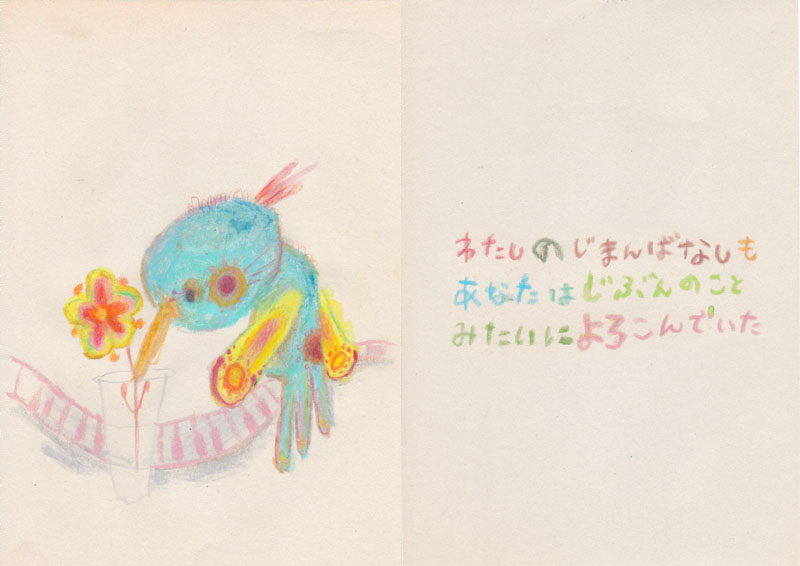 わたしのじまんばなしも
あなたはじぶんのこと
みたいによろこんでいた